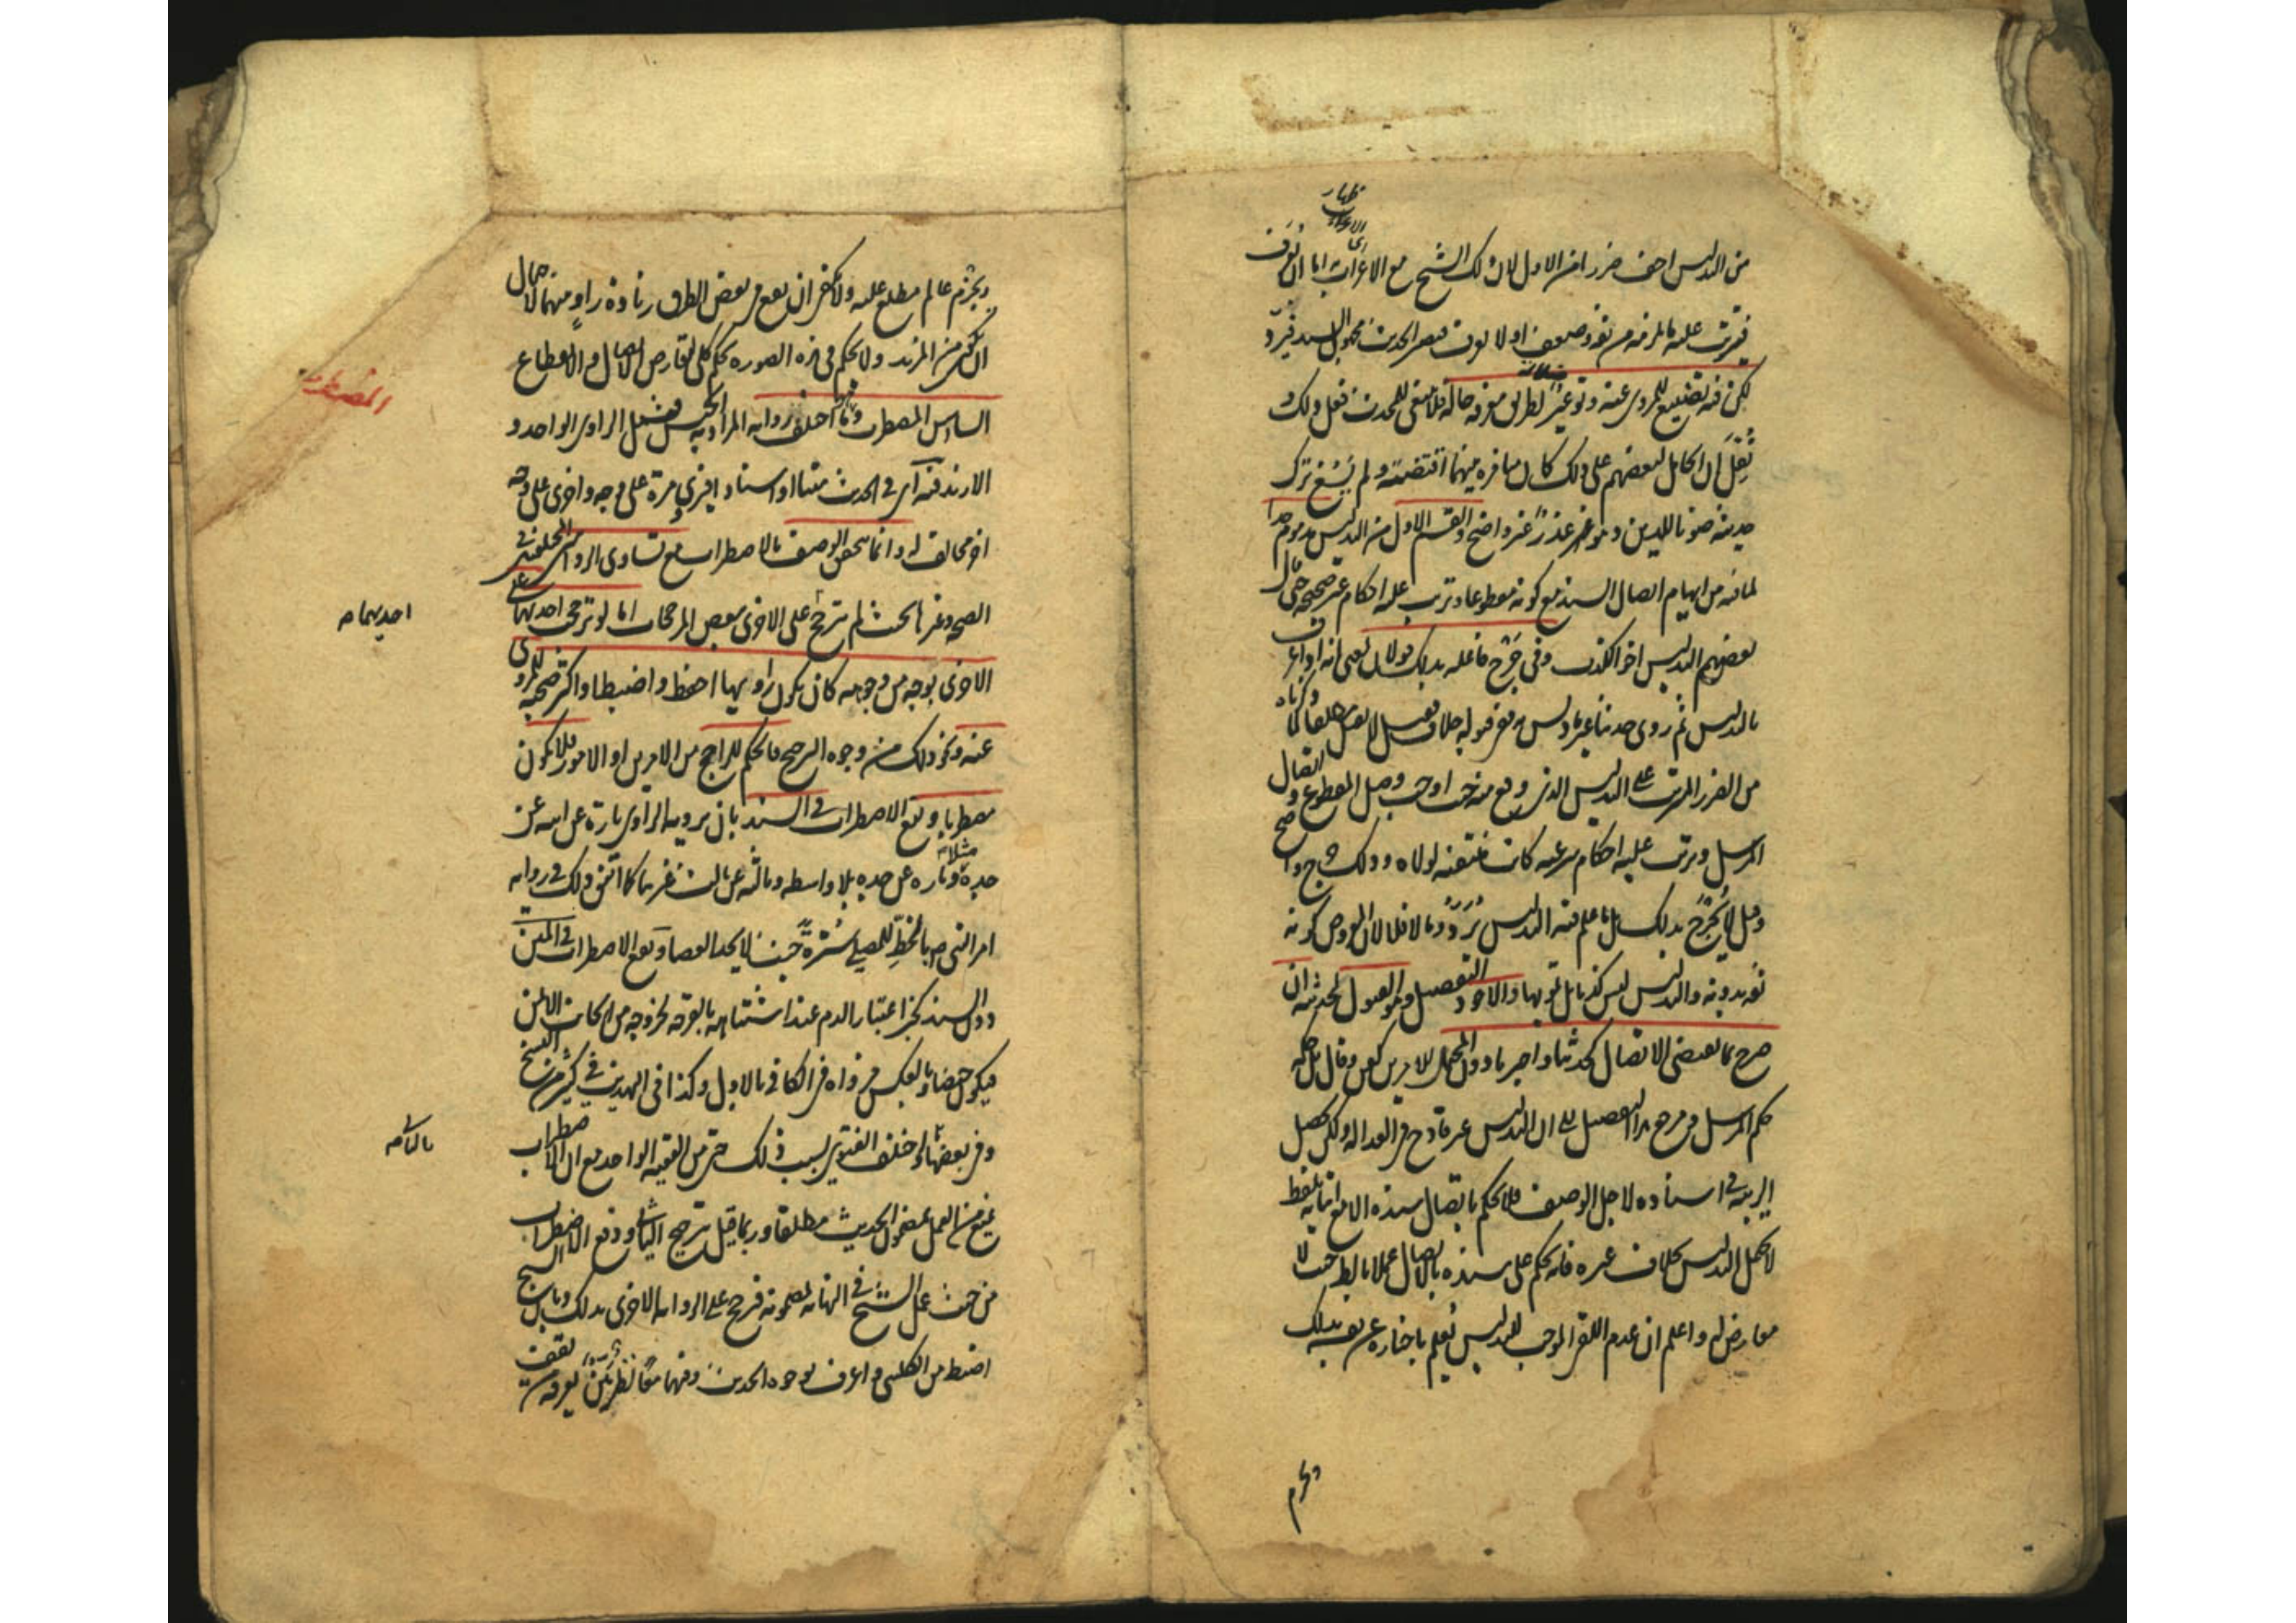 من التدليس اخف ضررا من الاول لان ذلك الشيخ مع الاغراب به اما ان يعرف
فيترتب عليه ما يلزمه من ثقة وضعف او لا يعرف فيصير الحديث مجهول السند فيرد
لكن فيه تضييع للمروى عنه وتوعير لطريق معرفة حاله فلا ينبغى للمحدث فعل ذلك و
نُقِلَ ان الحامل لبعضهم على ذلك كان منافرة بينهما اقتضته ولم يَسُغ ترك
حديثه صونا للدين وهو عذر غير واضح والقسم الاول من التدليس مذموم جدا
لما فيه من ايهام اتصال السند مع كونه مقطوعا ويترتب عليه احكام غير صحيحة حتى قال
بعضهم التدليس اخو الكذب وفى جَرْح فاعله بذلك قولان بمعنى انه اذا عرف
بالتدليس ثم روى حديثا غير ما دلس به ففى قبوله خلاف فقيل لا يقبل مطلقا لما ذكرناه
من الضرر المترتب على التدليس الذى وقع منه حيث اوجب وصل المقطوع واتصال
المرسل ويترتب عليه احكام شرعية كانت منتفية لولاه وذلك جرح واضح
وقيل لا يُجْرَح بذلك بل ما علم فيه التدليس يُرَدّ وما لا فلا لان المفروض كونه
ثقة بدونه والتدليس ليس كذبا بل تمويها والاجود التفصيل وهو القبول لحديثه ان
صرح بما يقتضى الاتصال كحدثنا واخبرنا دون المحتمل للامرين كعن وقال بل حكمه
حكم المرسل ومرجع هذا التفصيل الى ان التدليس غير قادح فى العدالة ولكن تحصل
الريبة فى اسناده لاجل الوصف فلا يحكم باتصال سنده الا مع اتيانه بلفظ
لا يحتمل التدليس بخلاف غيره فانه يحكم على سنده بالاتصال عملا بالظاهر حيث لا
معارض له واعلم ان عدم اللقى الموجب للتدليس يُعلم باخباره عن نفسه بذلك
ويجزم
ويجزم عالم مطلع عليه ولا يكفى ان يقع فى بعض الطرق زيادة راوٍ بينهما لاحتمال
ان يكون من المزيد ولا يحكم فى هذه الصورة بحكم كلى لتعارض الاتصال والانقطاع
المضطرب
السادس المضطرب وهو ما اختلف راويه المراد به الجنس فيشمل الراوى الواحد و
الازيد فيه اى فى الحديث متنا او اسنادا فيروى مرة على وجه واخرى على وجه
اخر مخالف له وانما يتحقق الوصف بالاضطراب مع تساوى الروايتين المختلفتين فى
الصحة وغيرها بحيث لم يترجح على الاخرى ببعض المرجحات اما لو ترجحت احديهما على
احديهما صح
الاخرى بوجه من وجوهه كان يكون راويها احفظ واضبط او اكثر صحبة للمروى
عنه ونحو ذلك من وجوه الترجيح فالحكم للراجح من الامرين او الامور فلا يكون
مضطربا ويقع الاضطراب فى السند بان يرويه الراوى تارة عن ابيه عن
جده مثلا وتارة عن جده بلا واسطة وثالثة عن ثالث غيرهما كما اتفق ذلك فى رواية
امر النبى ص بالخط للمصلى سُترةً حيث لا يجد العصا ويقع الاضطراب فى المتن
دون السند كخبر اعتبار الدم عند اشتباهه بالقرحة بخروجه من الجانب الايمن
فيكون حيضا او بالعكس فرواه فى الكافى بالاول وكذا فى التهذيب فى كثير من النسخ
وفى بعضها بالثانى واختلف الفتوى بسبب ذلك حتى من الفقيه الواحد مع ان الاضطراب
بالثانى صح
يمنع من العمل بمضمون الحديث مطلقا وربما قيل بترجيح الثانى ودفع الاضطراب
من حيث عمل الشيخ فى النهاية بمضمونه فرجح على الرواية الاخرى بذلك وبان الشيخ
اضبط من الكلينى واعرف بوجوه الحديث وفيهما معًا نظر بيّن يعرفه من يقف